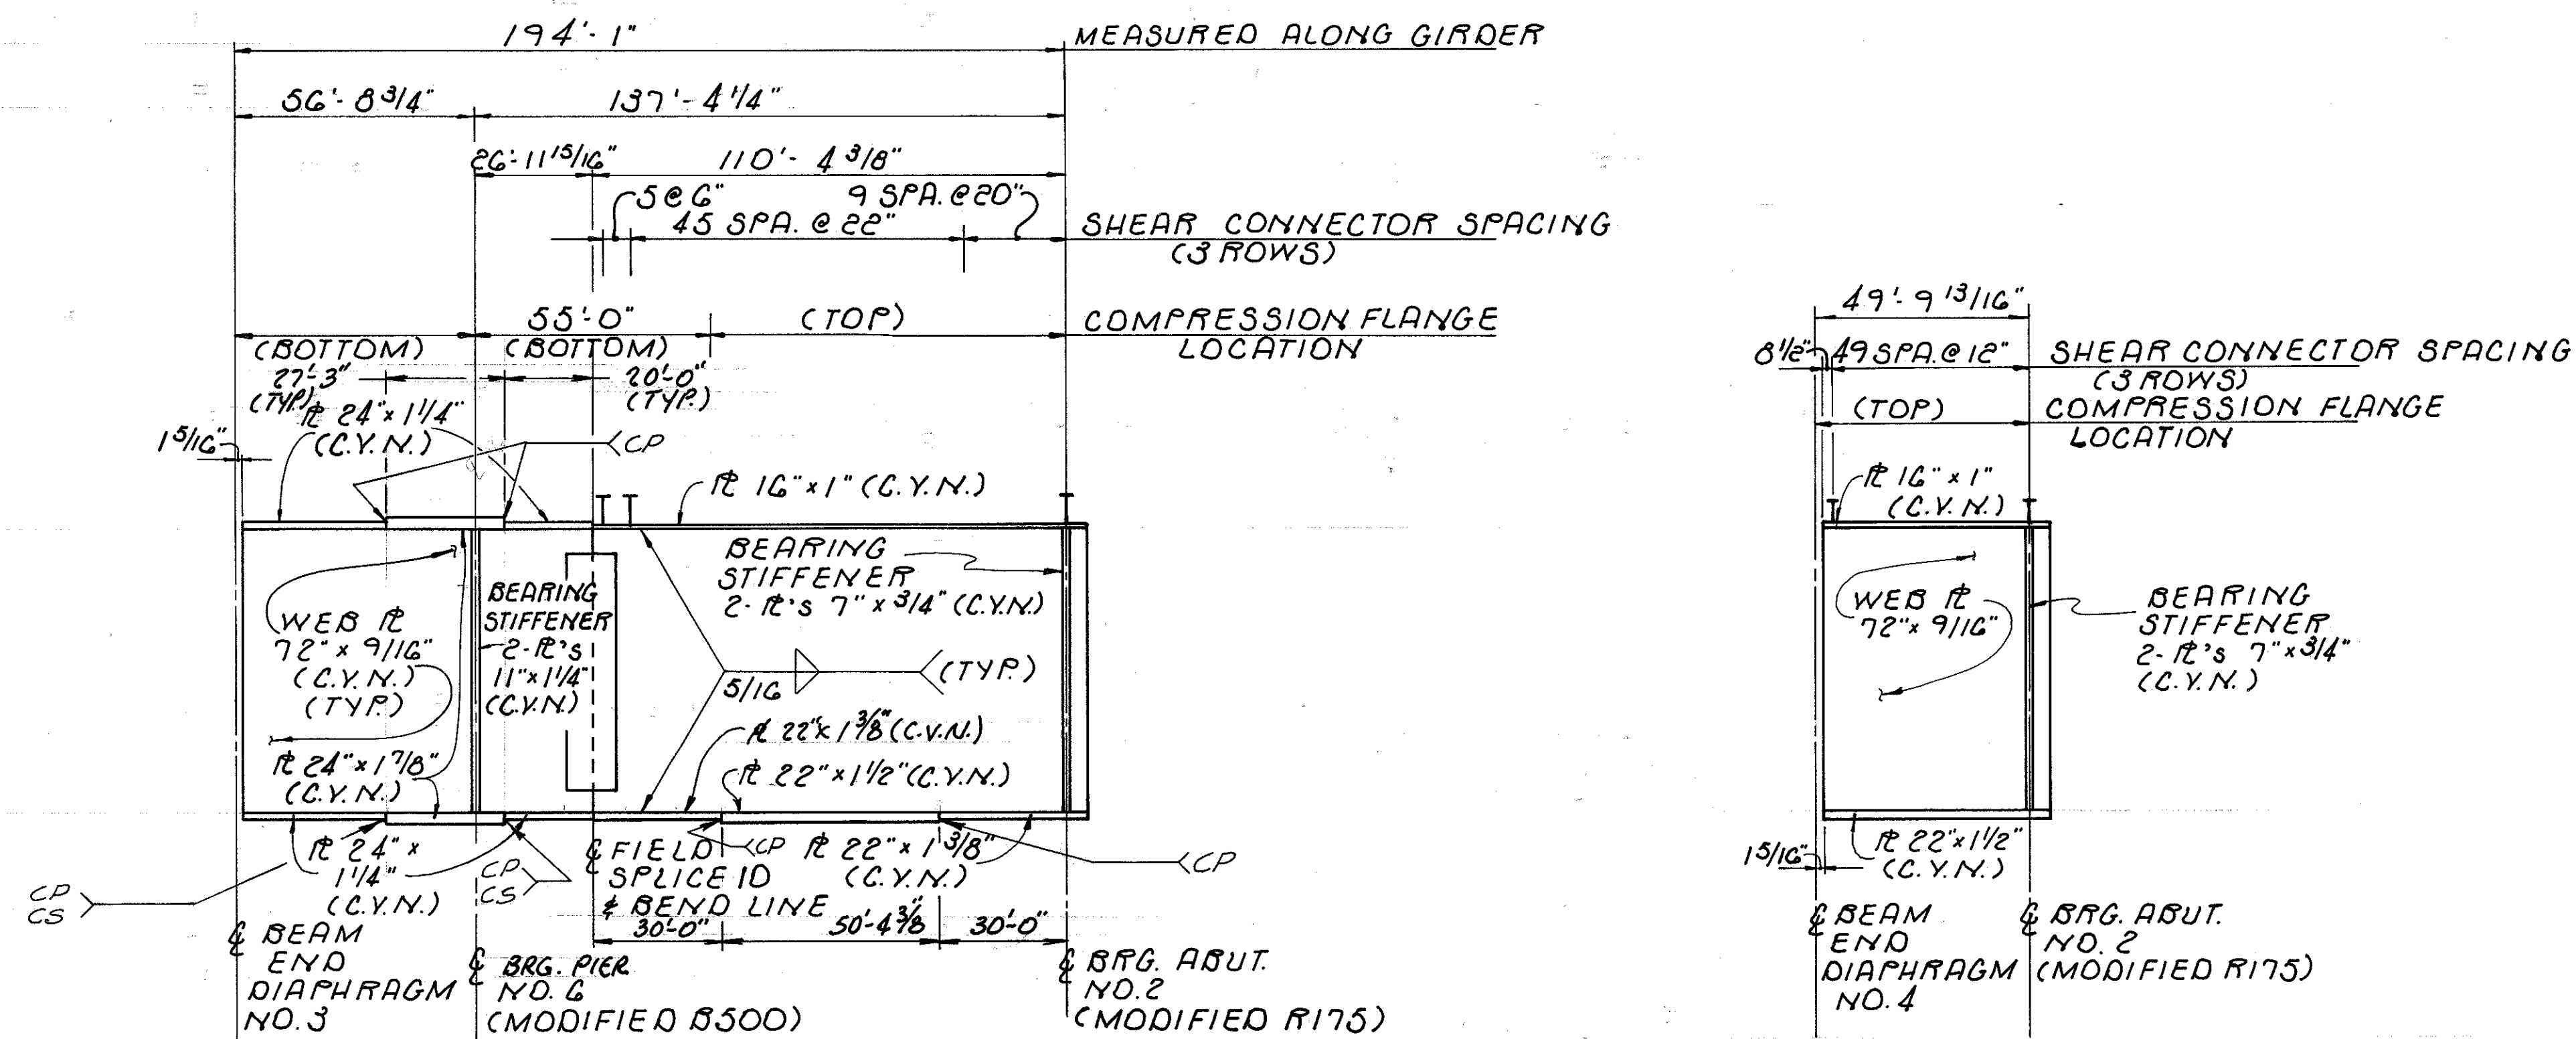 194'-1"
MEASURED ALONG GIRDER
56'-8 3/4"
137'-4 1/4"
26'-11 15/16"
110'-4 3/8"
5 @ 6"
9 SPA. @ 20"
45 SPA. @ 22"
SHEAR CONNECTOR SPACING
(3 ROWS)
55'-0"
(TOP)
COMPRESSION FLANGE
LOCATION
(BOTTOM)
(BOTTOM)
27'-3"
(TYP.)
20'-0"
(TYP.)
℄ 24" x 1 1/4"
(C.V.N.)
1 5/16"
CP
℄ 16" x 1" (C.V.N.)
BEARING
STIFFENER
2-℄'s 7" x 3/4" (C.V.N.)
BEARING
STIFFENER
2-℄'s
11" x 1 1/4"
(C.V.N.)
WEB ℄
72" x 9/16"
(C.V.N.)
(TYP.)
5/16
(TYP.)
℄ 22" x 1 3/8" (C.V.N.)
℄ 22" x 1 1/2" (C.V.N.)
℄ 24" x 1 7/8"
(C.V.N.)
℄ 24" x
1 1/4"
(C.V.N.)
CP
CS
CP
CS
℄ FIELD
SPLICE 10
& BEND LINE
CP
℄ 22" x 1 3/8"
(C.V.N.)
CP
30'-0"
50'-4 3/8"
30'-0"
℄ BEAM
END
DIAPHRAGM
NO. 3
℄ BRG. PIER
NO. 6
(MODIFIED B500)
℄ BRG. ABUT.
NO. 2
(MODIFIED R175)
49'-9 13/16"
8 1/2"
49 SPA. @ 12"
SHEAR CONNECTOR SPACING
(3 ROWS)
(TOP)
COMPRESSION FLANGE
LOCATION
℄ 16" x 1"
(C.V.N.)
WEB ℄
72" x 9/16"
BEARING
STIFFENER
2-℄'s 7" x 3/4"
(C.V.N.)
1 5/16"
℄ 22" x 1 1/2"
(C.V.N.)
℄ BEAM
END
DIAPHRAGM
NO. 4
℄ BRG. ABUT.
NO. 2
(MODIFIED R175)